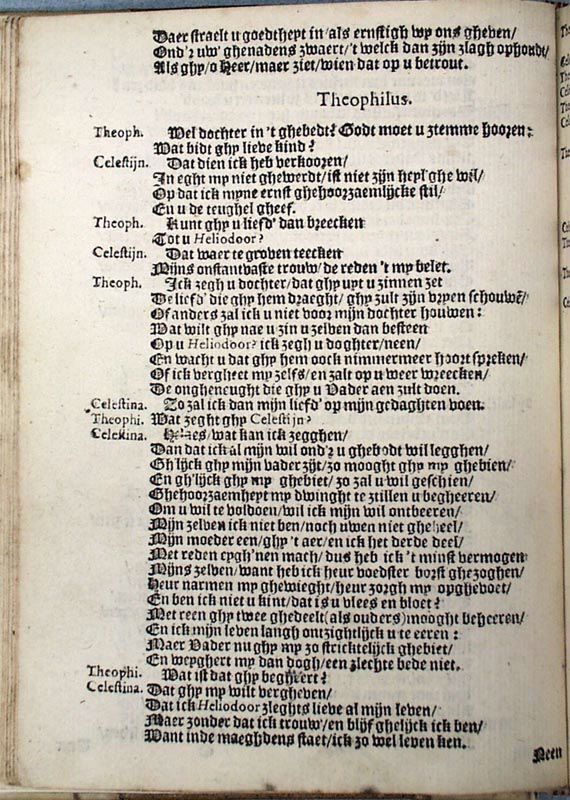 Daer straelt u goedtheyt in/als ernstigh wy ons gheven/
Ond'r uw' ghenadens zwaert/'t welck dan zijn zlagh ophoudt/
Als ghy/o Heer/maer ziet/wien dat op u betrout.
Theophilus.
Theoph. Wel dochter in 't ghebedt? Godt moet u ztemme hooren:
Wat bidt ghy lieve kind?
Celestijn. Dat dien ick heb verkooren/
In eght my niet ghewerdt/ist niet zijn heyl'ghe wil/
Op dat ick myne ernst ghehoorzaemlijcke stil/
En u de teughel gheef.
Theoph. Kunt ghy u liefd' dan breecken
Tot u Heliodoor?
Celestijn. Dat waer te groven teecken
Mijns onstantvaste trouw/de reden 't my belet.
Theoph. Ick zegh u dochter/dat ghy uyt u zinnen zet
De liefd' die ghy hem draeght/ ghy zult zijn vryen schouwē/
Of anders zal ick u niet voor mijn dochter houwen:
Wat wilt ghy nae u zin u zelven dan besteen
Op u Heliodoor? ick zegh u doghter/neen/
En wacht u dat ghy hem oock nimmermeer hoort spreken/
Of ick vergheet my zelfs/en zalt op u weer wreecken/
De ongheneught die ghy u Vader aen zult doen.
Celestina. Zo zal ick dan mijn liefd' op mijn gedaghten voen.
Theophi. Wat zeght ghy Celestijn?
Celestina. Helaes/wat kan ick zegghen/
Dan dat ick al mijn wil ond'r u ghebodt wil legghen/
Gh'lijck ghy mijn vader zijt/zo mooght ghy my ghebien/
En gh'lijck ghy my ghebiet/ zo zal u wil geschien/
Ghehoorzaemheyt my dwinght te ztillen u begheeren/
Om u wil te voldoen/wil ick mijn wil ontbeeren/
Mijn zelven ick niet ben/noch uwen niet gheheel/
Mijn moeder een/ghy 't aer/en ick het derde deel/
Met reden eygh'nen mach/ dus heb ick 't minst vermogen
Mijns zelven/want heb ick heur voedster borst ghezoghen/
Heur narmen my ghewieght/heur zorgh my opghevoet/
En ben ick niet u kint/dat is u vlees en bloet?
Met reen ghy twee ghedeelt(als ouders)mooght beheeren/
En ick mijn leven langh ontzightlijck u te eeren:
Maer Vader nu ghy my zo strickelijck ghebiet/
En weyghert my dan dogh/een zlechte bede niet.
Theophi. Wat ist dat ghy begheert?
Celestina. Dat ghy my wilt vergheven/
Dat ick Heliodoor zleghts lieve al mijn leven/
Maer zonder dat ick trouw/en blijf ghelijck ick ben/
Want inde maeghdens staet/ick zo wel leven ken.
Neen